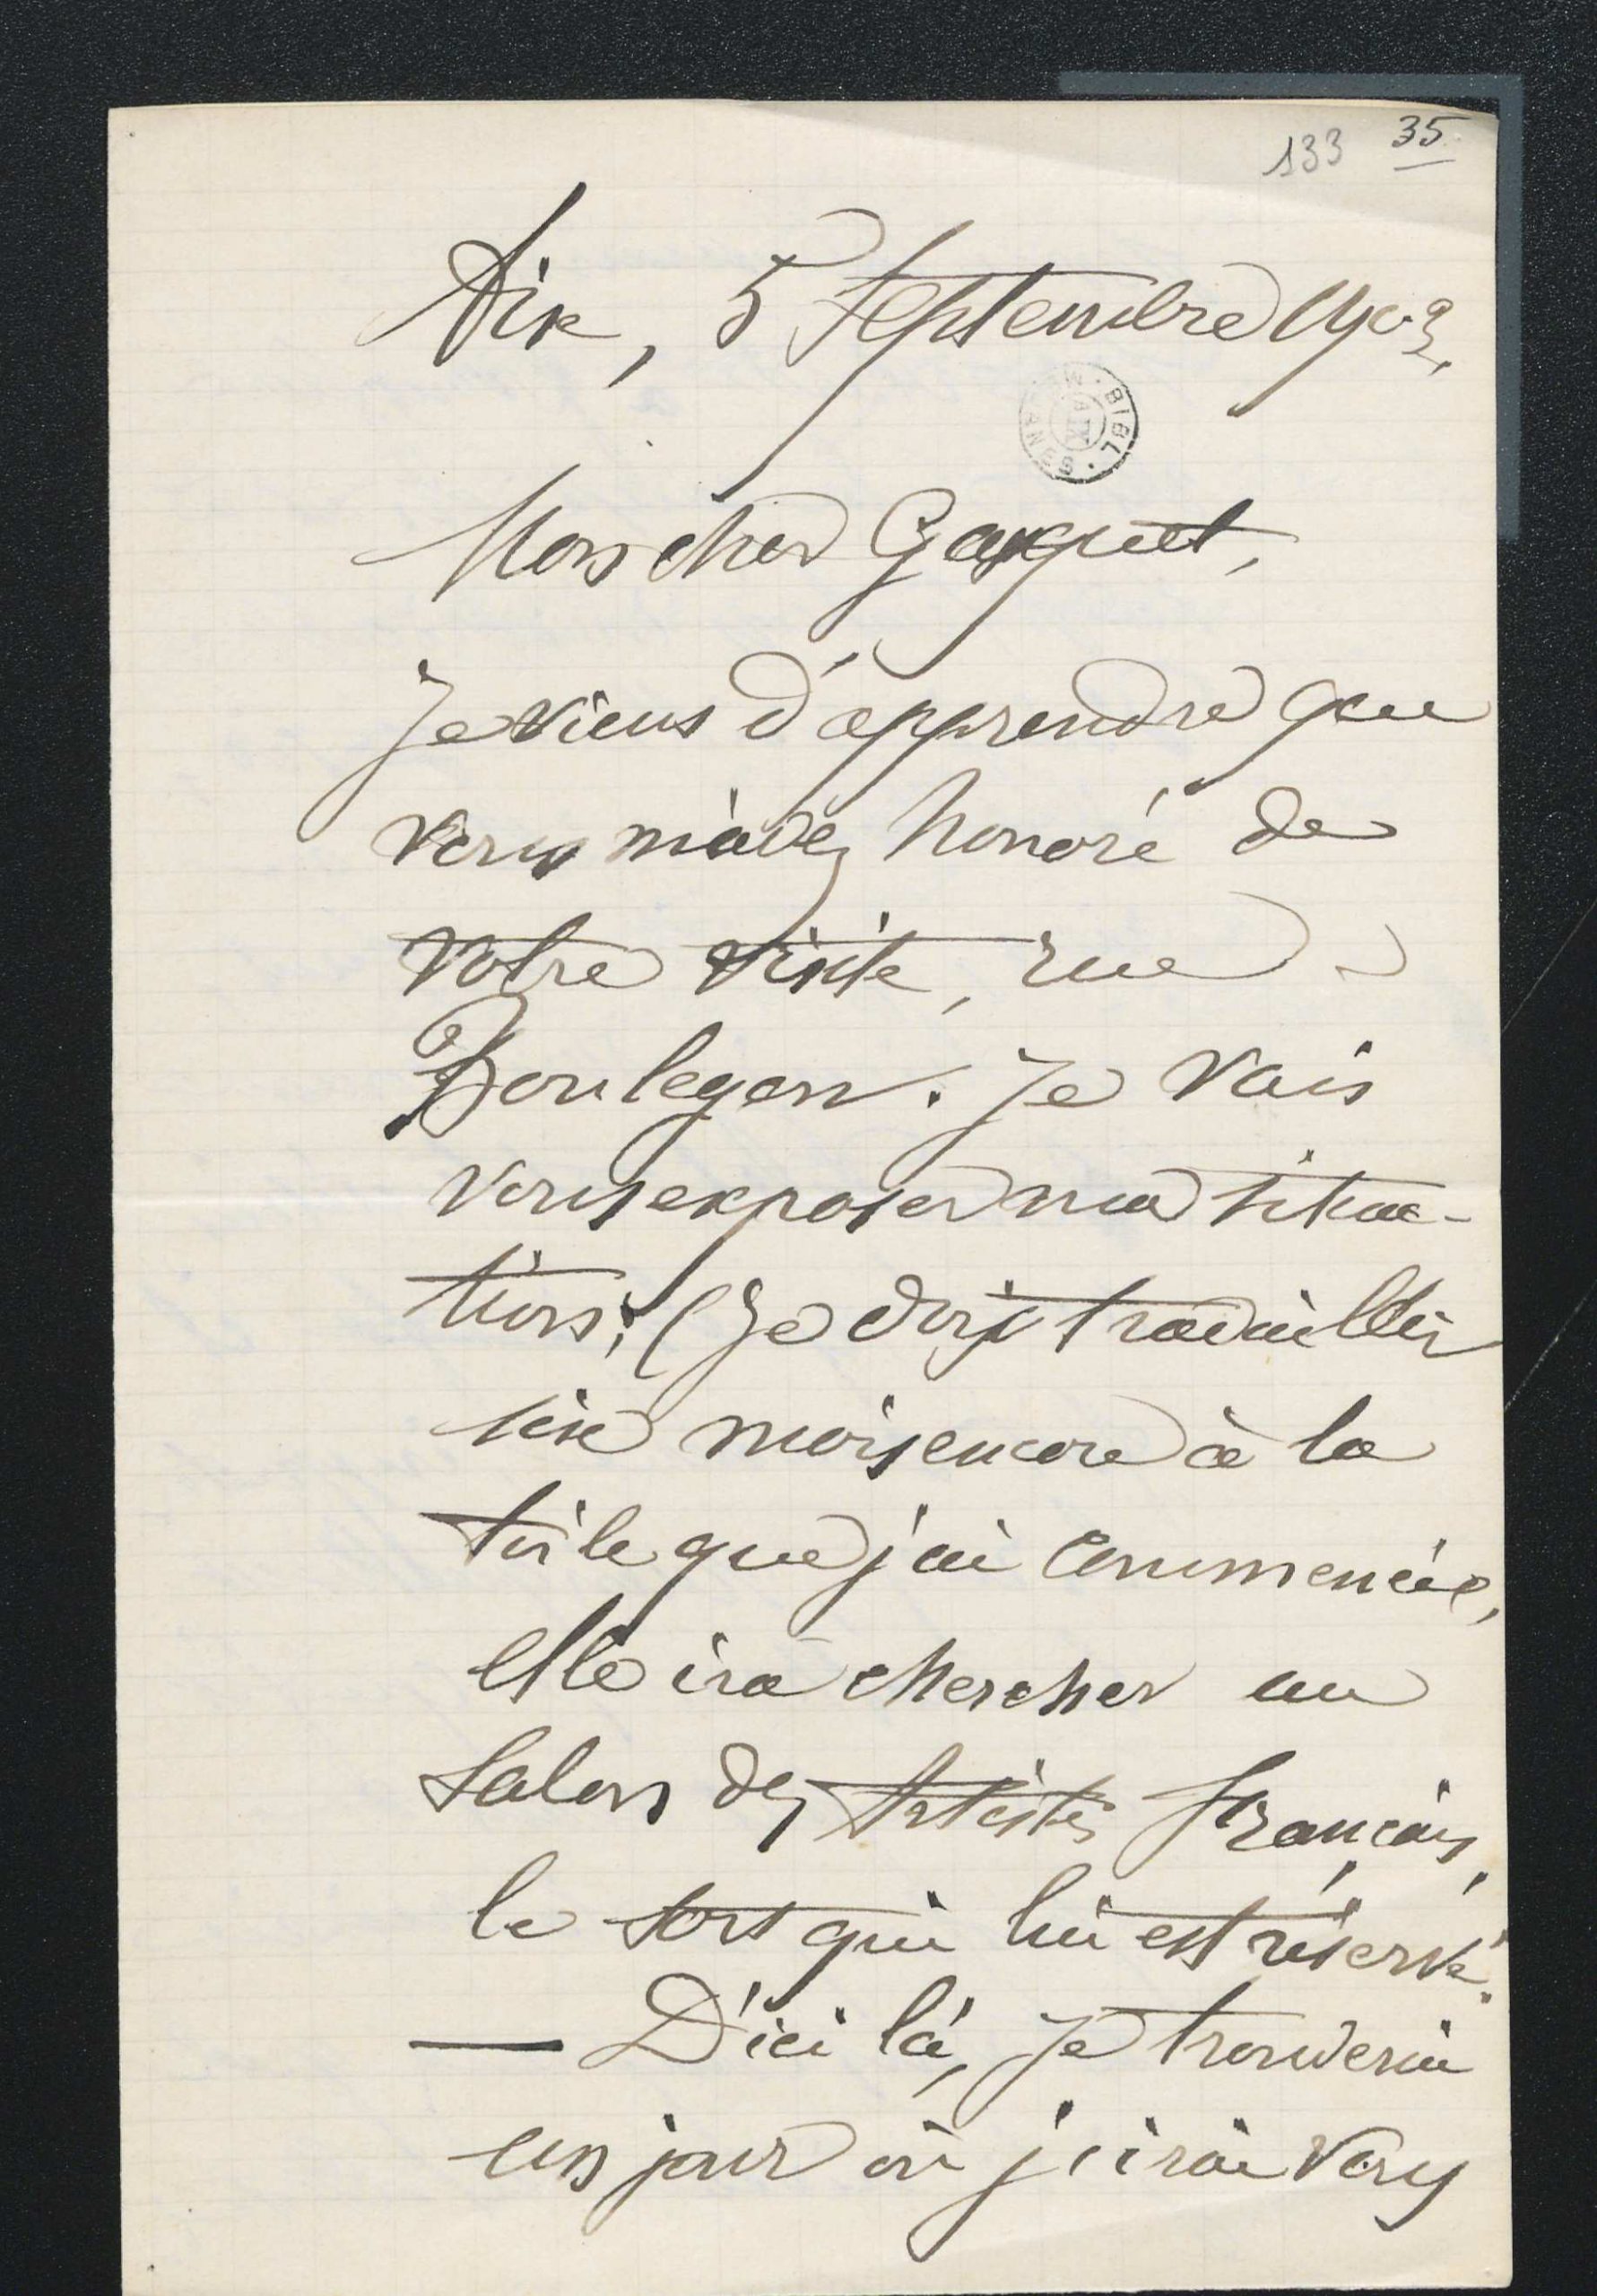 133 35
Aix, 5 Septembre 1903,
BIBL. MEJANES AIX
Mon cher Gasquet,
Je viens d'apprendre que
vous m'avez honoré de
votre visite, rue
Boulegon. Je vais
vous exposer ma situa-
tion; (Je dois travailler
six mois encore à la
toile que j'ai commencée,
elle ira chercher au
Salon des Artistes français,
le sort qui lui est réservé.
— D'ici là, je trouverai
un jour où j'irai vous